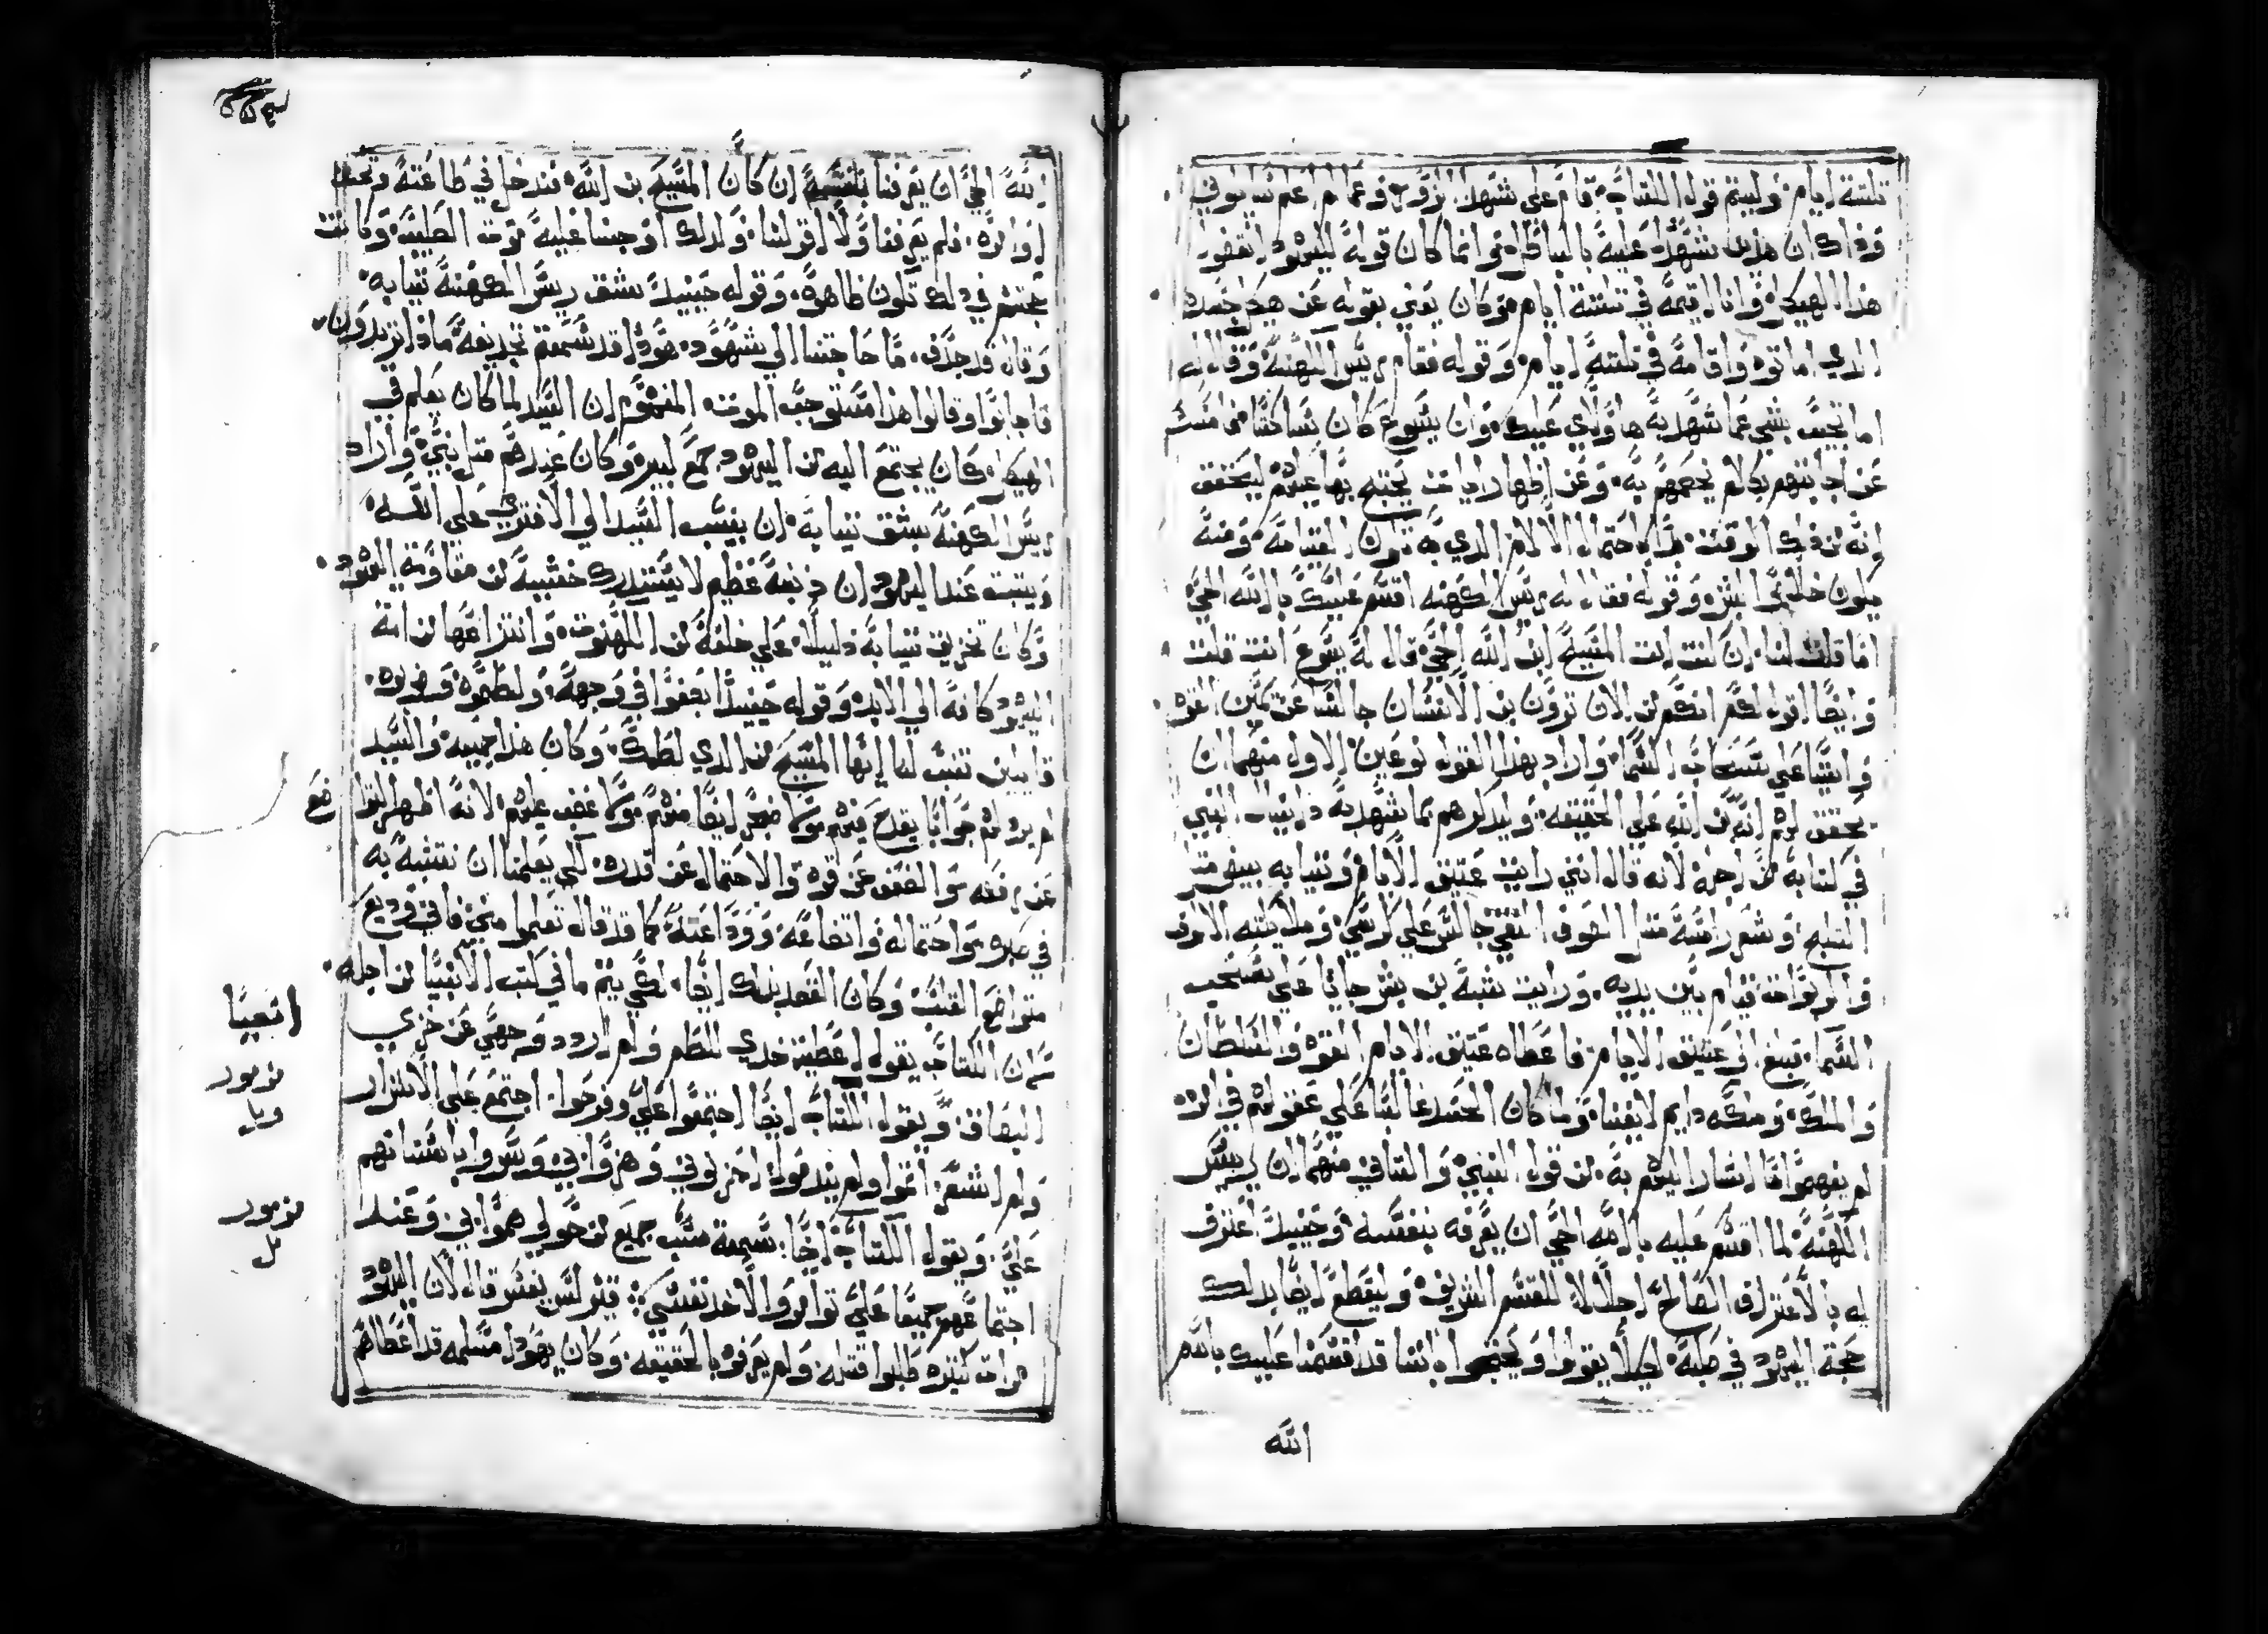 تلتة ايام وليتم قول الكتاب قام علي شهدا الزور وعما لم اعلم سالوني
وقد كان هذين شهدا عليه بالباطل وانما كان قوله لليهود انقضوا
هذا الهيكل وانا اقيمه في تلتة ايام وكان يعني بقوله عن هيكل جسده
الدي اماتوه واقامه في تلتة ايام وقوله فقام ريس الكهنة وقال له
اما تجيب بشي عما شهد به هاولاي عليك وان يسوع كان ساكتا
عن اجابتهم بكلام يخصمهم به وعن اظهار ايات يحتج بها عليهم ليتحقق
انه من دلك الوقت بدا باحتمال الالام الدي به تكون القيامة ومنه
يكون خلاص البشر وقوله فقال له ريس الكهنه اقسم عليك بالله الحي
اما قلت لنا ان كنت انت المسيح ابن الله الحي قال له يسوع انت قلت
وايضا اقول لكم انكم من الان ترون بن الانسان جالسا عن يمين القوه
واتيا علي سحاب السما واراد بهذا القول نوعين الاول منهما ان
يحقق لهم انه بن الله علي الحقيقه وليدكرهم بما شهد به دانيال النبي
في كتابه من اجله لانه قال انني رايت عتيق الايام وتيابه بيض متل
التلج وشعر راسه متل الصوف النقي جالس علي كرسي وملايكته الالوف
والربوات قيام بين يديه ورايت شبه بن بشر جايا علي سحب
السما فبلغ الي عتيق الايام فاعطاه عتيق الايام القوه والسلطان
والملك وملكه دايم لا يفنا ولما كان الحسد غالبا علي عقولهم في ارد
لم يفهموا ما اشار اليهم به من قول النبي والتاني منهما ان ريس
الكهنة لما اقسم عليه بالله الحي ان يعرفه بنفسه وحينيد اعترف
له بالاعتراف الصالح اجلالا للقسم الشريف وليقطع ايضا بدلك
حجة اليهود في صلبه ليلا يقولوا ويحتجوا باننا قد اقسمنا عليك بالله
الله
الله الحي ان يعرفنا بنفسه ان كان المسيح بن الله فندخل في طاعته وتحت
اوامره فلم يعرفنا ولا اقر لنا ولدلك اوجبنا عليه موت الصليب وكانت
حجتهم في دلك تكون ظاهره وقوله حينيد شق ريس الكهنة تيابه
وقال قد جدف ما حاجتنا الي شهود هودا قد سمعتم تجديفه مادا تريدون
فاجابوا وقالوا هذا مستوجب الموت المفهوم ان السيد لما كان يعلم في
الهيكل كان يجتمع اليه من اليهود جمع كبير وكان عندهم متل نبي واراد
ريس الكهنة بشق تيابه ان ينسب السيد الي الافتري علي الله
ويتبت عند اليهود ان دنبه عظيم لا يستدرك خشية من مقاومة اليهود
وكان تخريق تيابه دليلا علي خلعه من الكهنوت وانتزاعها من امة
اليهود كافة الي الابد وقوله حينيدا بصقوا في وجهه ولطموه وضربوه
قايلين تنبا لنا ايها المسيح من الدي لطمك وكان هذا جميعه والسيد
لم يرد لهم جوابا يقدح فيهم ولا ضجر ايضا منهم ولا غضب عليهم لانه اظهر التواضع
عن رفعه والضعف عن قوة والاحتمال عن قدره لكي يعلمنا ان نتشبه به
في صبره واحتماله واتضاعه ووداعته كما قد قال تعلموا مني فاني وديع
متواضع القلب وكان القصد بدلك ايضا لكي يتم ما في كتب الانبيا من اجله
ان الكتاب يقول اعطيت خدي للطم ولم اردد وجهي عن خزي
البصاق ويقول الكتاب ايضا اجتمعوا علي وفرحوا اجتمع علي الاشرار
ولم اشعر اتموا ولم يندموا احزنوني وهزوا بي وسروا باسنانهم
علي ويقول الكتاب ايضا سمعت سب جميع من حولي هموا بي وعند
اجتماعهم جميعا علي توامروا لاخد نفسي قير لس يفسر قال لان اليهود
مرات كتيره طلبوا قتله ولم يعرفوه بالحقيقه وكان يهودا مسلمه قد اعطاهم
اشعيا
مزمور
مزمور